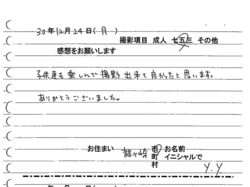 30年12月24日(月)
撮影項目 成人 七五三 その他
感想をお願いします
子供達も楽しんで撮影出来て良かったと思います。
ありがとうございました。
お住まい 龍ヶ崎 市町村 お名前 イニシャルで
Y.Y